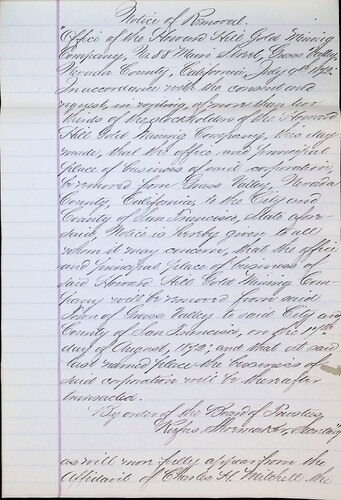 Notice of Removal.
Office of the Howard Hill Gold Mining
Company, No. 88 Main Street, Grass Valley,
Nevada County, California, July 9th 1872.
In accordance with the consent and
request, in writing, of more than two
thirds of the stockholders of the Howard
Hill Gold Mining Company, this day
made, that the office and principal
place of business of said corporation
be removed from Grass Valley, Nevada
County, California, to the City and
County of San Francisco, State afore-
said, Notice is hereby given to all
whom it may concern, that the office
and principal place of business of
said Howard Hill Gold Mining Com-
pany will be removed from said
Town of Grass Valley to said City and
County of San Francisco, on the
day of August, 1872; and that at said
last named place the business of
said corporation will be thereafter
transacted.
By order of the Board of Trustees,
Rufus Shoemaker, Secretary
as will more fully appear from the
Affidavit of Charles H. Mitchell the